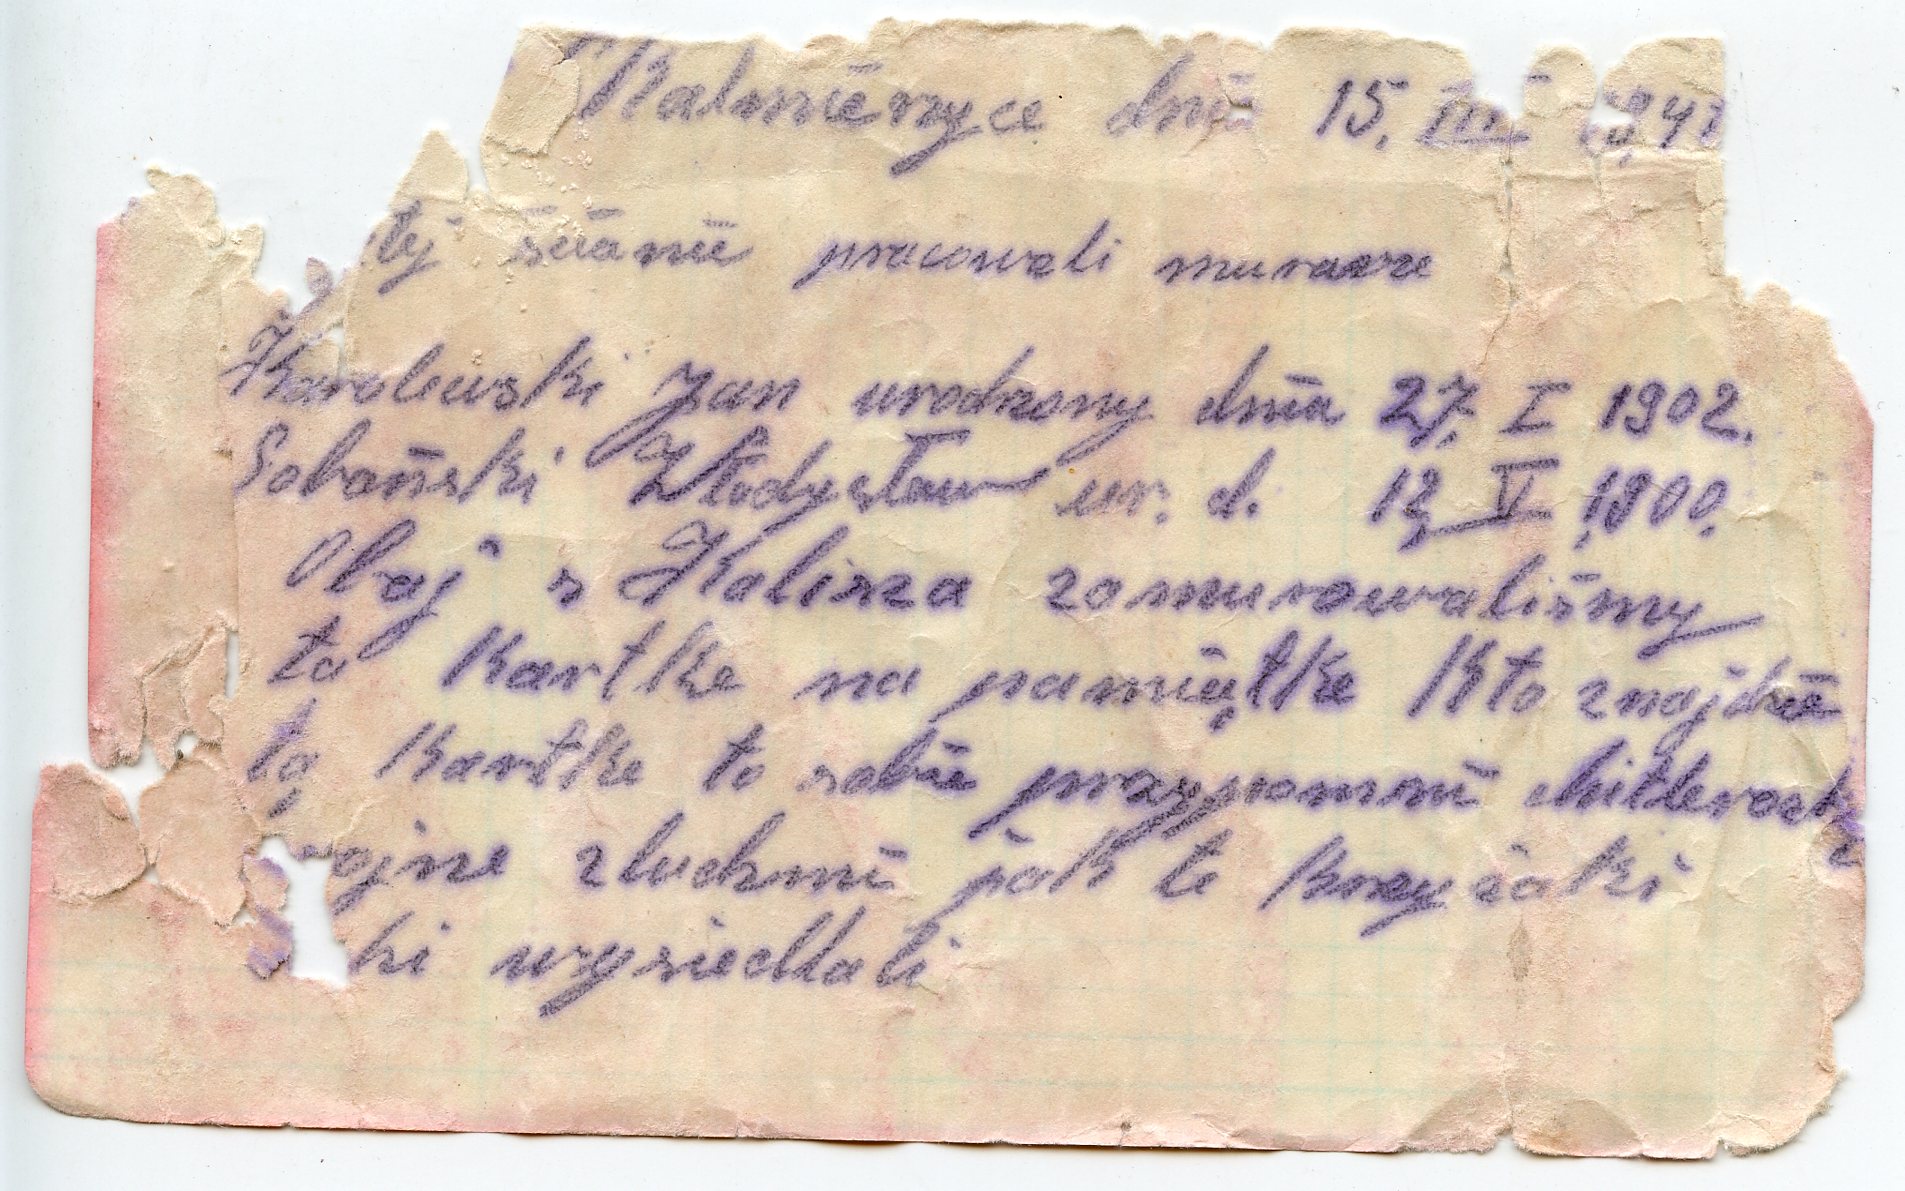 Skalmierzyce dnia 15. III 1941
tej ścianie pracowali murarze
Karolewski Jan urodzony dnia 27. I 1902.
Sobański Władysław ur. d. 12, V 1900.
Obaj z Kalisza zamurowaliśmy
ta Kartke na pamiątke Kto znajdzie
tą Kartke to sobie przypomni chitlerosk
ojne zluchmi jak te Krzyżaki
ki wysiedlali